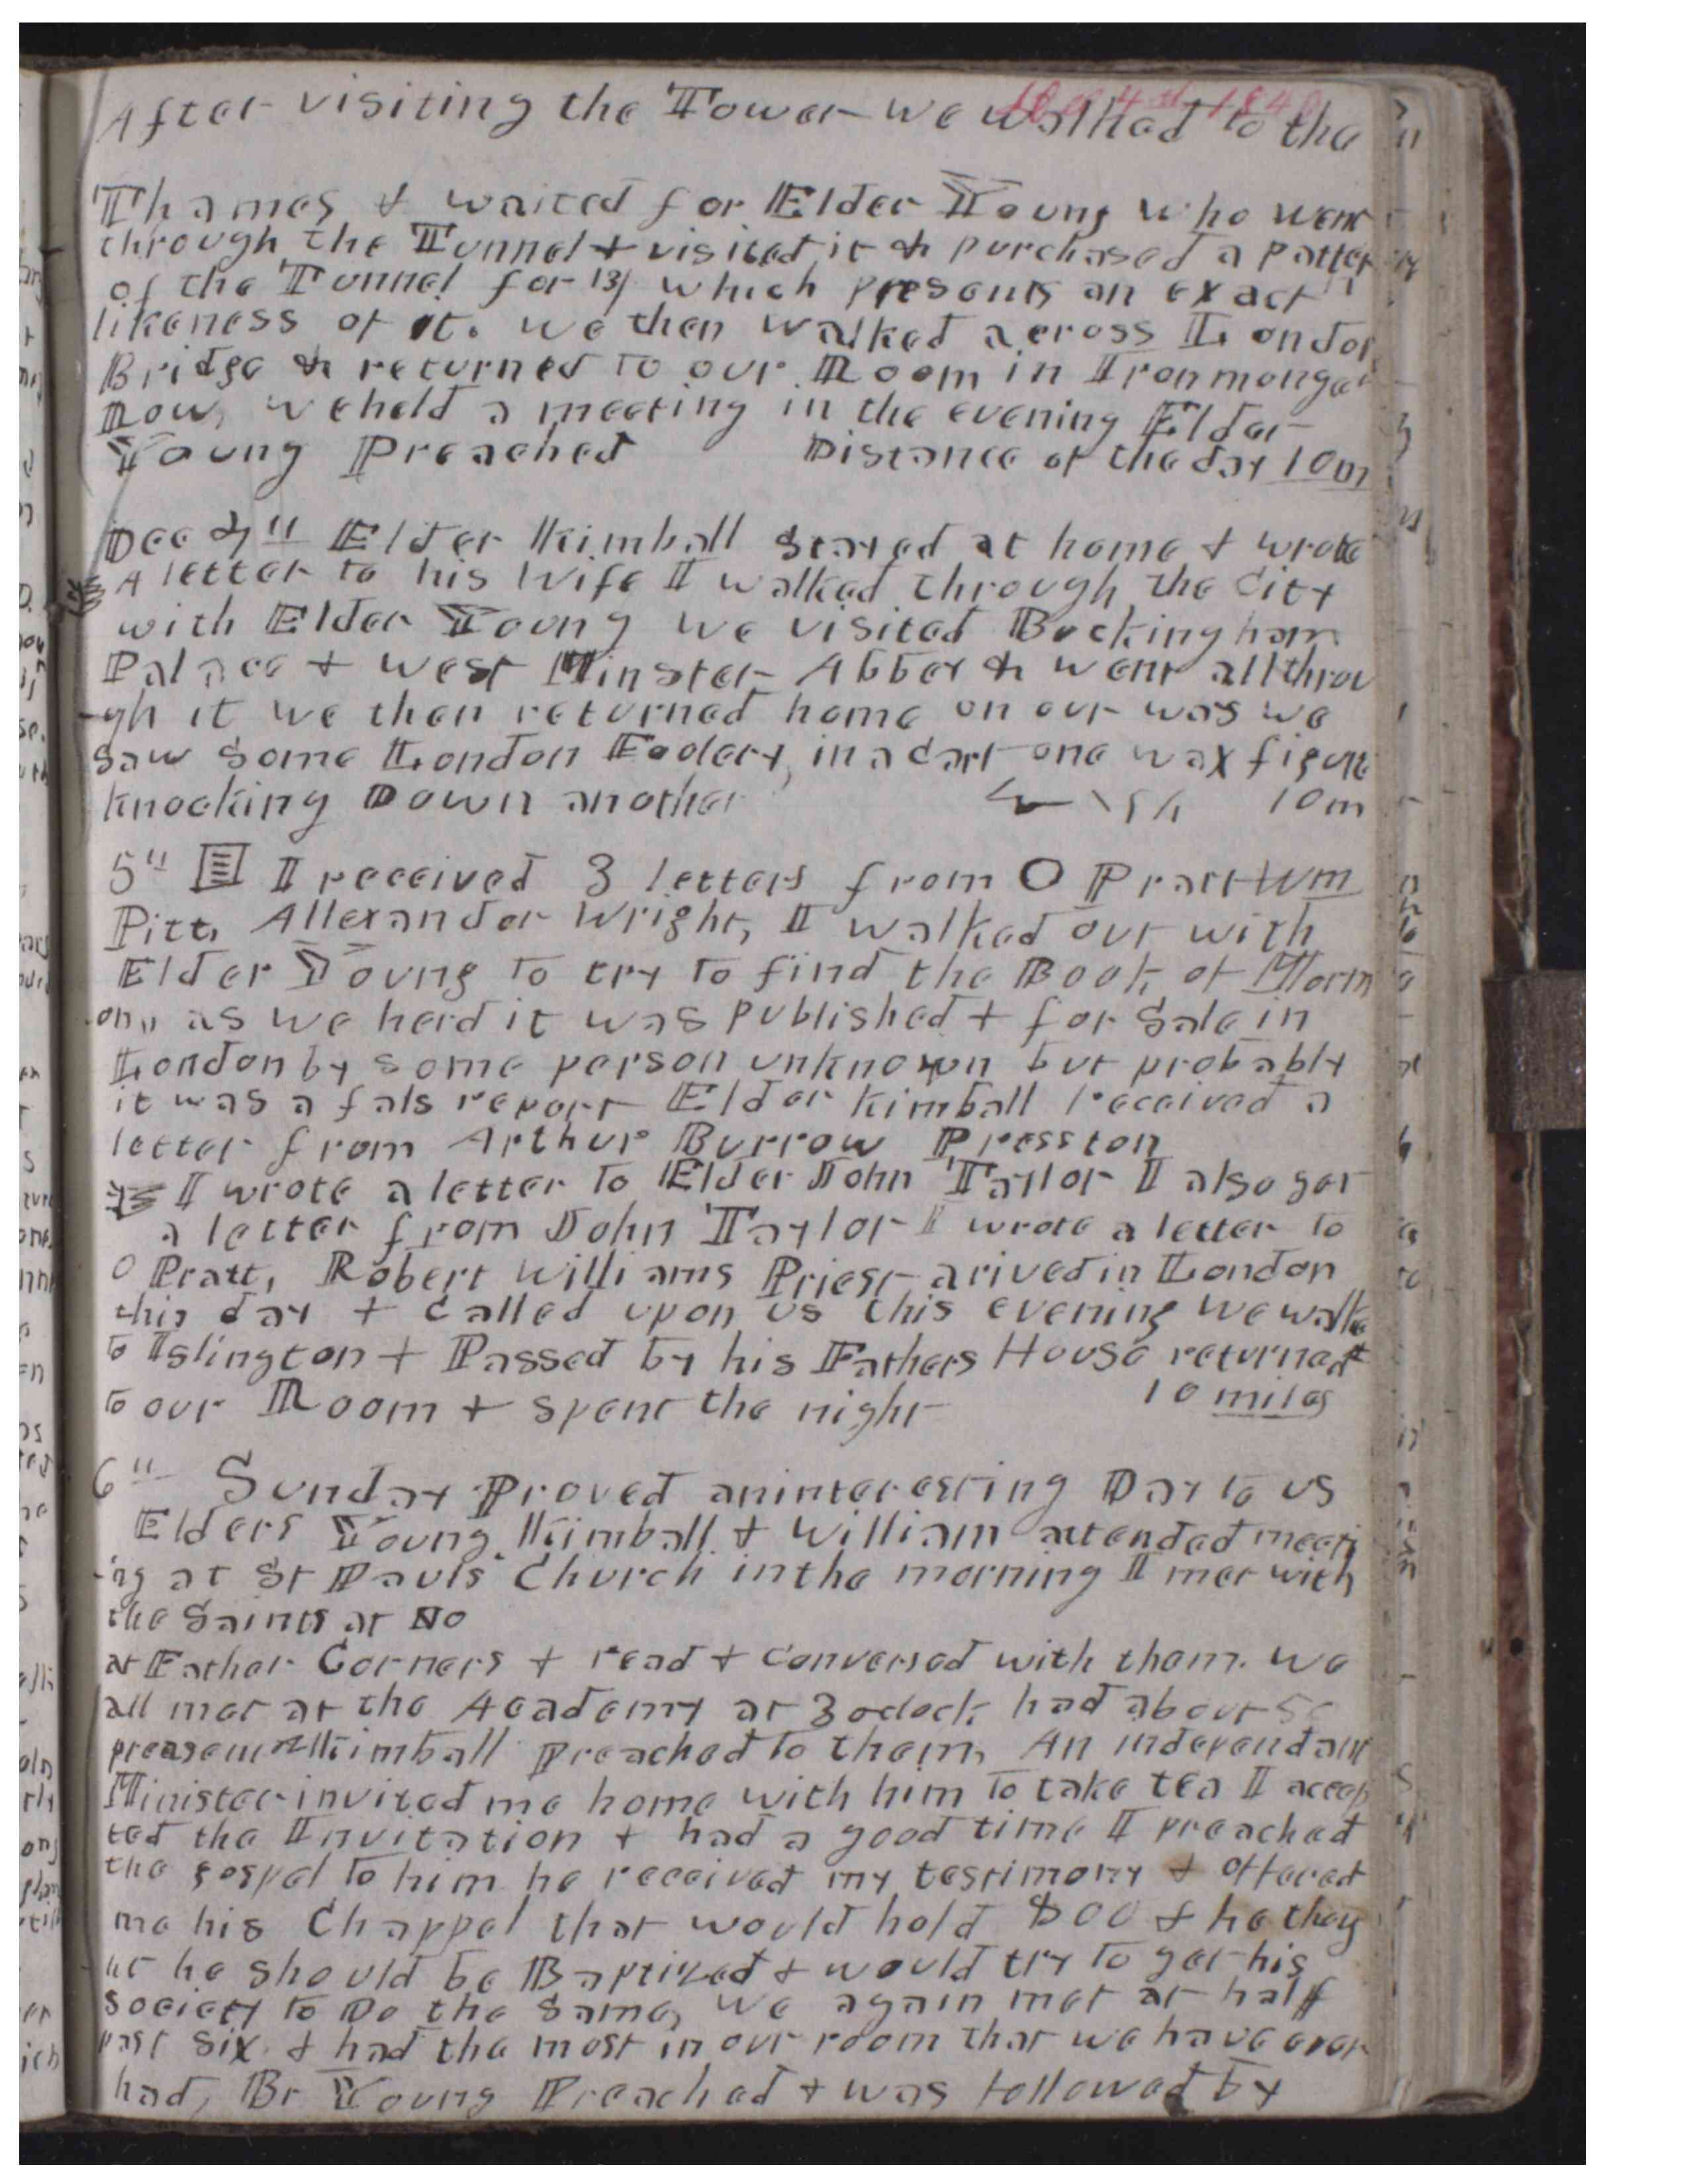 Dec 4th 1840
After visiting the Tower we walked to the
Thames & waited for Elder Young who went
through the Tunnel & visited it & purchased a patter
of the Tunnel for 13/ which presents an exact
likeness of it. we then walked across London
Bridge & returned to our Room in Ironmonger
Row, we held a meeting in the evening Elder
Young Preached Distance of the day 10m
Dec 4th Elder Kimball stayed at home & wrote
A letter to his Wife I walked through the City
with Elder Young we visited Buckingham
Palace & West Minster Abbey & went all throu
-gh it we then returned home on our was we
saw some London in a cart one wax figure
knocking Down another 10m
5th I received 3 letters from O Pratt Wm
Pitt, Allexander Wright, I walked out with
Elder Young to try to find the Book of Morm
-on, as we herd it was published & for sale in
London by some person unknown but probably
it was a fals report Elder Kimball received a
letter from Arthur Burrow Presston
I wrote a letter to Elder John Taylor I also got
a letter from John Taylor I wrote a letter to
O Pratt, Robert Williams Priest arived in London
this day & called upon us this evening we walk
to Islington & Passed by his Fathers House returned
to our Room & spent the night 10 miles
6th Sunday Proved an interesting Day to us
Elders Young Kimball & William attended meeti
-ng at St Pauls Church in the morning I met with
the Saints at No
at Father Corners & read & conversed with them. we
all met at the Academy at 3 oclock had about 50
Kimball preached to them, An independant
Minister invited me home with him to take tea I accep
ted the Invitation & had a good time I preached
the gospel to him he received my testimony & offered
me his Chappel that would hold 800 & he thoug
ht he should be Baptized & would try to get his
society to Do the same, we again met at half
past six & had the most in our room that we have ever
had, Br Young Preached & was followed by